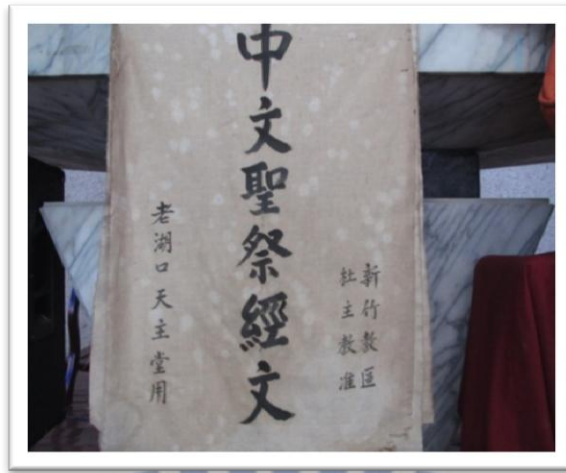 新竹教區
杜主教准
中文聖祭經文
老湖口天主堂用